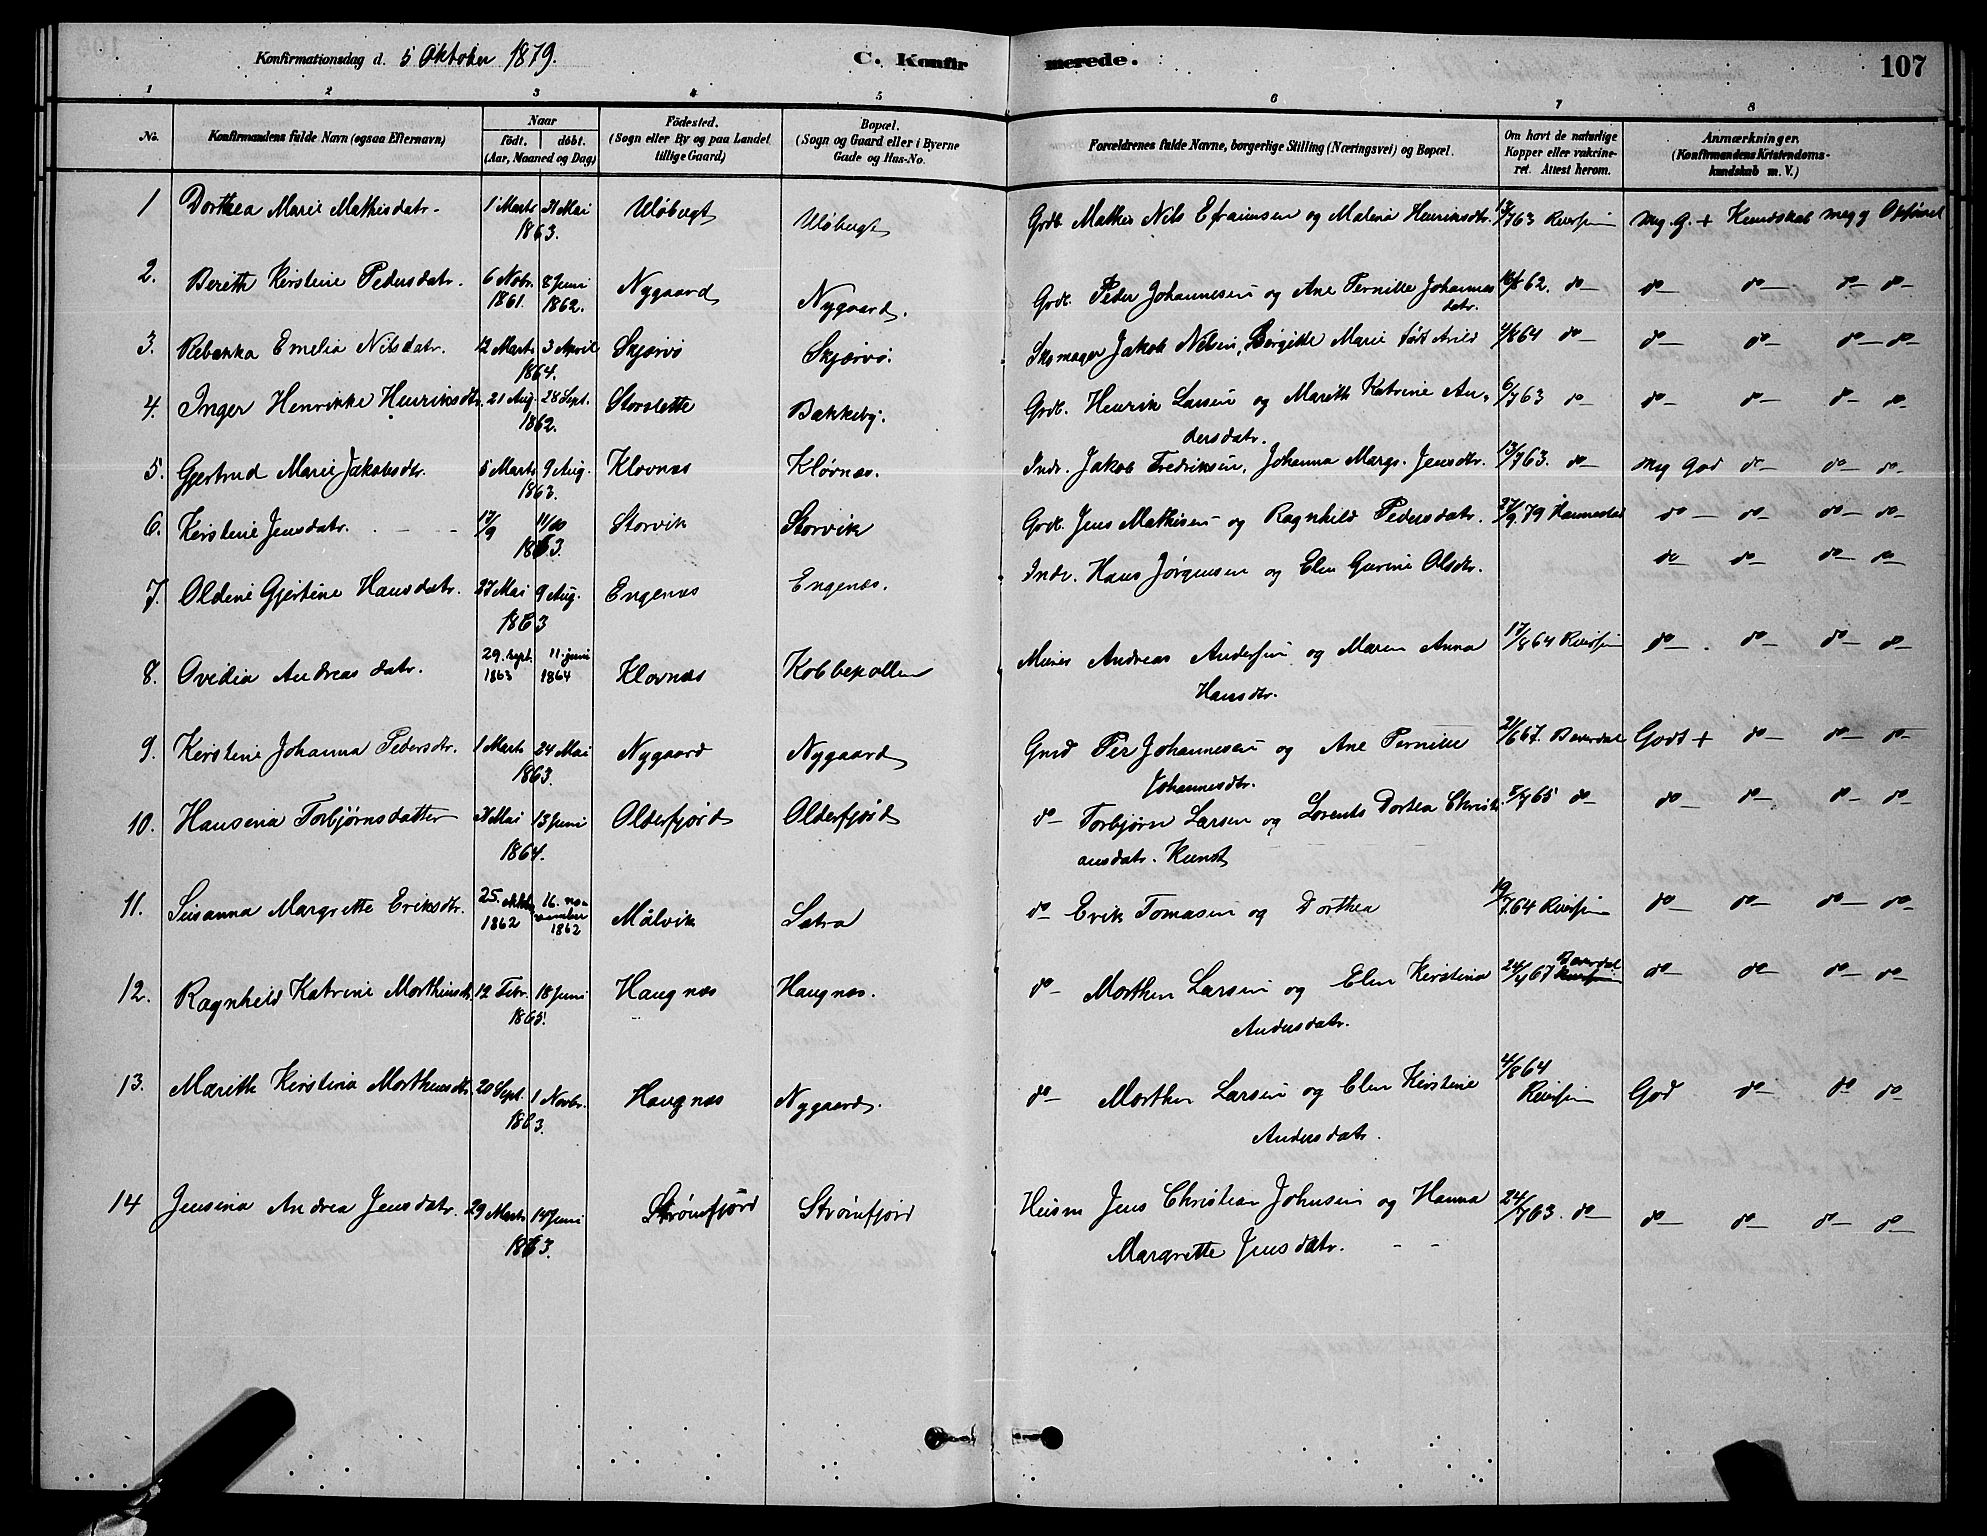 Konfirmationsdag d. 5 Oktober 1879.
C. Konfirmerede.
107
1 2 3 4 5 6 7 8
No.
Konfirmandens fulde Navn (ogsaa Efternavn)
Naar
födt. döbt.
(Aar, Maaned og Dag)
Födested.
(Sogn eller By og paa Landet
tillige Gaard)
Bopæl.
(Sogn og Gaard eller i Byerne
Gade og Hus-No.
Forældrenes fulde Navne, borgerlige Stilling (Næringsvei) og Bopæl.
Om havt de naturlige
Kopper eller vakcine-
ret. Attest herom.
Anmærkninger.
(Konfirmandens Kristendoms-
kundskab m. V.)
1 Dorthea Marie Mathisdatr. 1 Marts 31 Mai Uløbugt Uløbugt Grdb. Mathis Nils Efraimsen og Malena Henriksdtr. Meg. G. + Kundskab meg g Opførsel
1863.
2. Berith Kirstine Pedersdatr. 6 Nobr. 8 Juni Nygaard Nygaard. Grdb. Peder Johannesen og Ane Pernille Johannes 62. do do do do do
1861. 1862. datr.
3. Rebekka Emelia Nilsdatr. 12 Marts 3 April Skjærvø Skjærvø. Skomager Jakob Nelsen, Birgitte Marie født Arild 4/8 64 do do do do do
1864.
4. Inger Henrikke Henriksdtr. 21 Aug. 28 Sept. Storslette Bakkeby. Grdb. Henrik Larsen og Mareth Katrine An- 6/7 63 do do do do do
1862. dersdatr.
5. Gjertrud Marie Jakobsdtr. 5 Marts 9 Aug. Klovnæs Kløvnæs. Indr. Jakob Fredriksen, Johanna Margr. Jensdtr. 13/7 63. do Meg God do do do
1863.
6. Kirstine Jensdatr. - - - 17/9 11/10 Storvik Storvik Grdb. Jens Mathisen og Ragnhild Pedersdatr. 27/9 79 do do do do
1863.
7. Oldine Gjertine Hansdatr. 27 Mai 9 Aug. Engenæs Engenæs. Indr. Hans Jørgensen og Elen Gurine Olsdtr. do do do do
1863
8. Ovedia Andreas datr. 29. sept. 11. juni Klovnæs Kobbepollen Andreas Andersen og Maren Anna 17/8 64 do do do do
1863 1864 Hansdtr.
9. Kirstine Johanna Pedersdtr. 1 Marts 24 Mai Nygaard Nygaard Per Johannesen og Ane Pernille 21/6 67. Baverdal Godt + do do do
1863. Johannesdtr.
10. Hansena Torbjørnsdatter 31 Mai 13 Juni Olderfjord Olderfjord do Torbjørn Larsen og Lorents Dortea Christi 65 do do do do do
1864. ansdatr. Kunst
11. Susanna Margrette Eriksdtr. 25. oktbr 16. no- Målvik Satra do Erik Tomasen og Dorthea 19/7 64 do do do do
1862 vember
1862
12. Ragnhild Katrine Morthensdtr. 12 Febr. 18 Juni Haugnæs Haugnæs. do Morthen Larsen og Elen Kirstina 67 Baverdal do do do do
1865. Andersdatr.
13. Marith Kirstina Morthensdtr. 20 Sept. 1 Novbr. Haugnæs Nygaard. do Morthen Larsen og Elen Kirstine 4/8 64 God do do do
1863. Andersdatr.
14 Jensina Andrea Jensdatr. 29 Marts 14 Juni Strømfjord Strømfjord Husm Jens Christian Johnsen og Hanna 24/7 63. do do do do do
1863. Margrette Jensdatr. - -